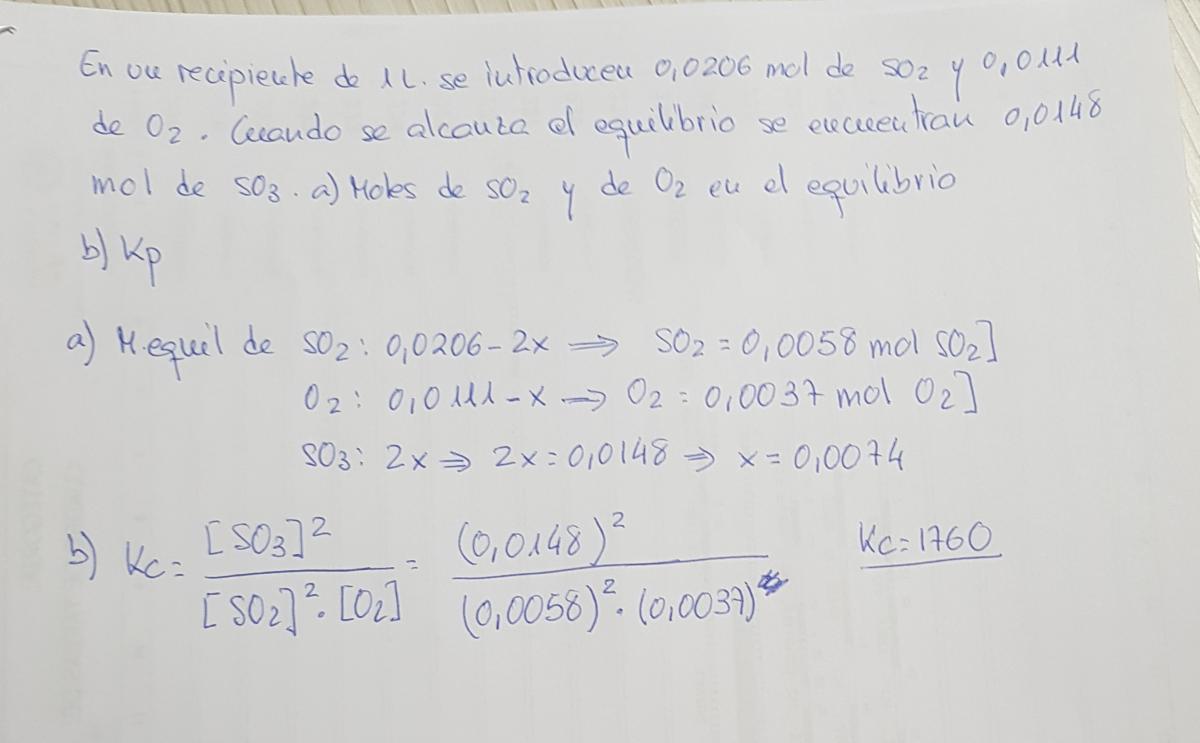 En un recipiente de 1L. se introducen 0,0206 mol de SO2 y 0,0111
de O2. Cuando se alcanza el equilibrio se encuentran 0,0148
mol de SO3. a) Moles de SO2 y de O2 en el equilibrio
b) Kp
a) M.equil de SO2: 0,0206-2x ⟹ SO2 = 0,0058 mol SO2]
O2: 0,0111-x ⟹ O2 = 0,0037 mol O2]
SO3: 2x ⟹ 2x = 0,0148 ⟹ x = 0,0074
b) Kc = [SO3]² / [SO2]²·[O2] = (0,0148)² / (0,0058)²·(0,0037) Kc = 1760